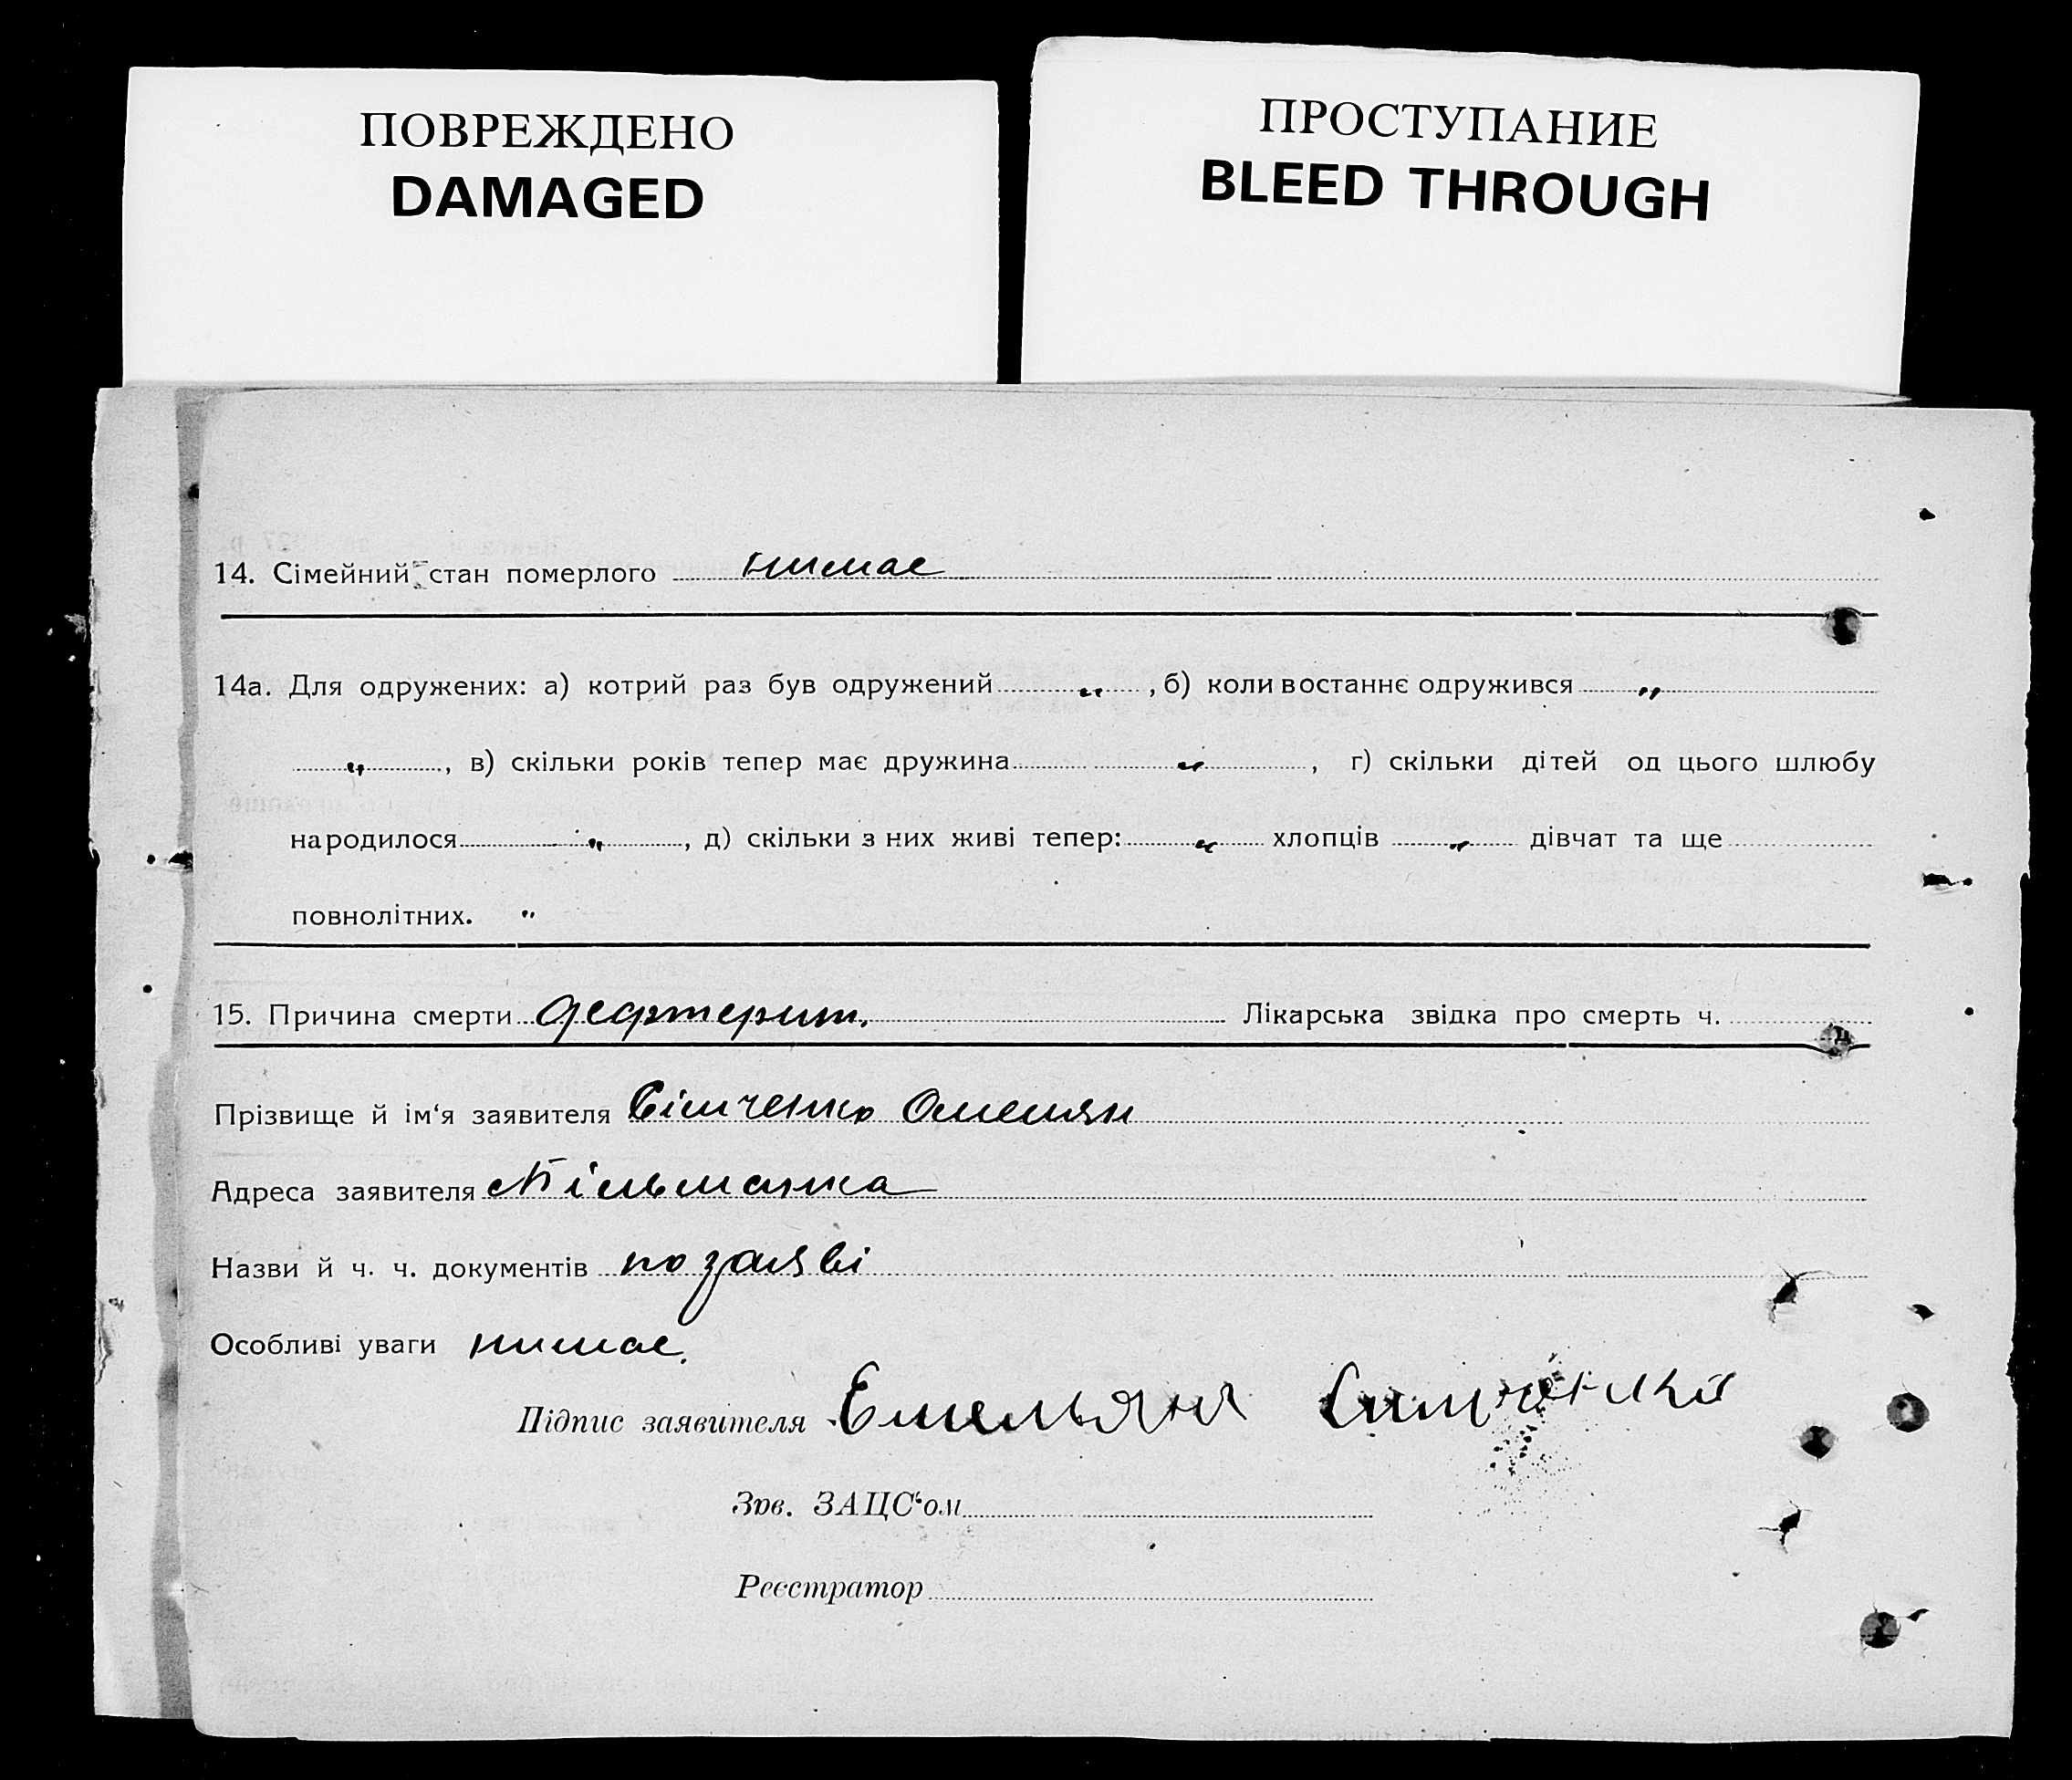 ПОВРЕЖДЕНО
DAMAGED
ПРОСТУПАНИЕ
BLEED THROUGH
14. Сімейний стан померлого нимає
14а. Для одружених: а) котрий раз був одружений „ , б) коли востаннє одружився „
„ , в) скільки років тепер має дружина „ , г) скільки дітей од цього шлюбу
народилося „ , д) скільки з них живі тепер: „ хлопців „ дівчат та ще
повнолітних. „
15. Причина смерти дефтерит. Лікарська звідка про смерть ч.
Прізвище й ім‘я заявителя Сімченко Омелян
Адреса заявителя
Назви й ч. ч. документів по заяві
Особливі уваги нимає.
Підпис заявителя Емельян Симченко
Зав. ЗАЦС‘ом
Реєстратор